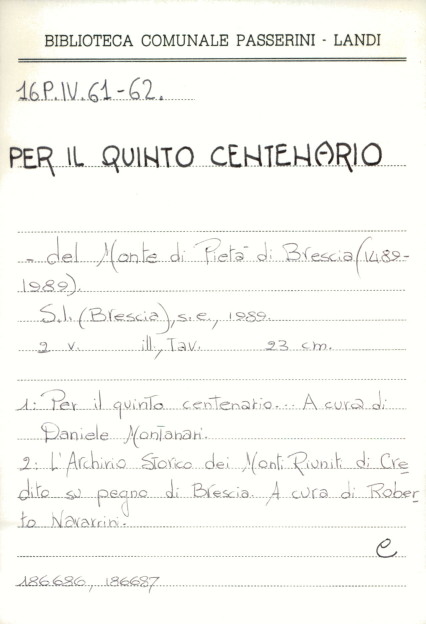 BIBLIOTECA COMUNALE PASSERINI - LANDI
16P.IV.61-62.
PER IL QUINTO CENTENARIO
- del Monte di Pietà di Brescia (1489-
1989).
S.l. (Brescia), s.e., 1989.
2 v. ill., Tav. 23 cm.
1: Per il quinto centenario... A cura di
Daniele Montanari.
2: L'Archivio Storico dei Monti Riuniti di Cre
dito su pegno di Brescia. A cura di Rober
to Navarrini.
e
186686, 186687